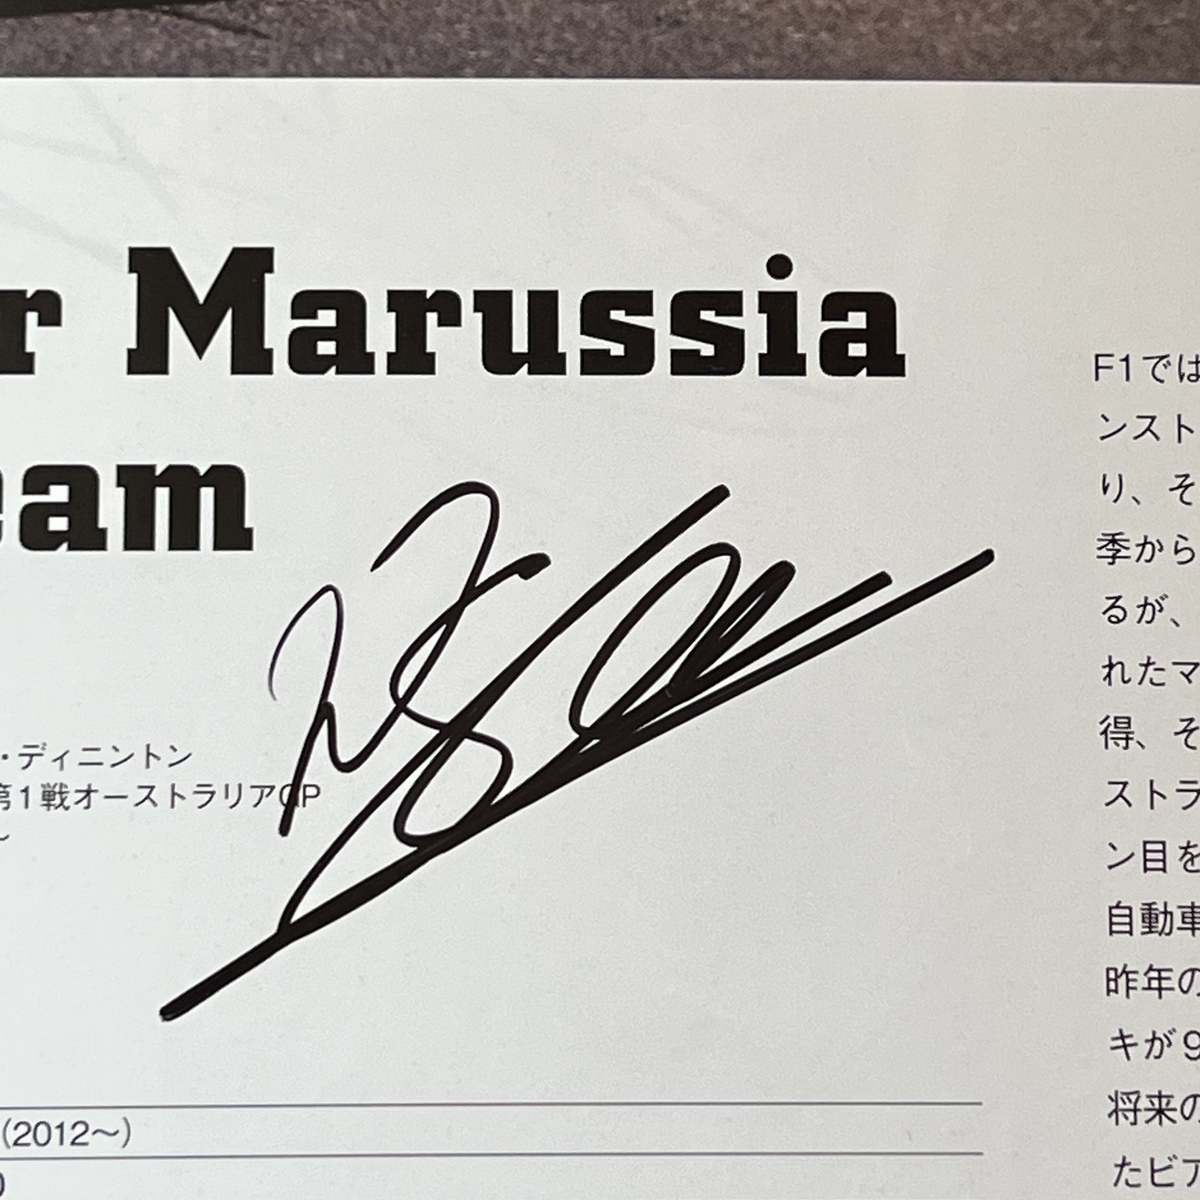 r Marussia
eam
・ディニントン
第1戦オーストラリアGP
～
(2012～)
0
F1では
ンスト
り、そ
季から
るが、
れたマ
得、そ
ストラ
ン目を
自動車
昨年の
キが9
将来の
たビア